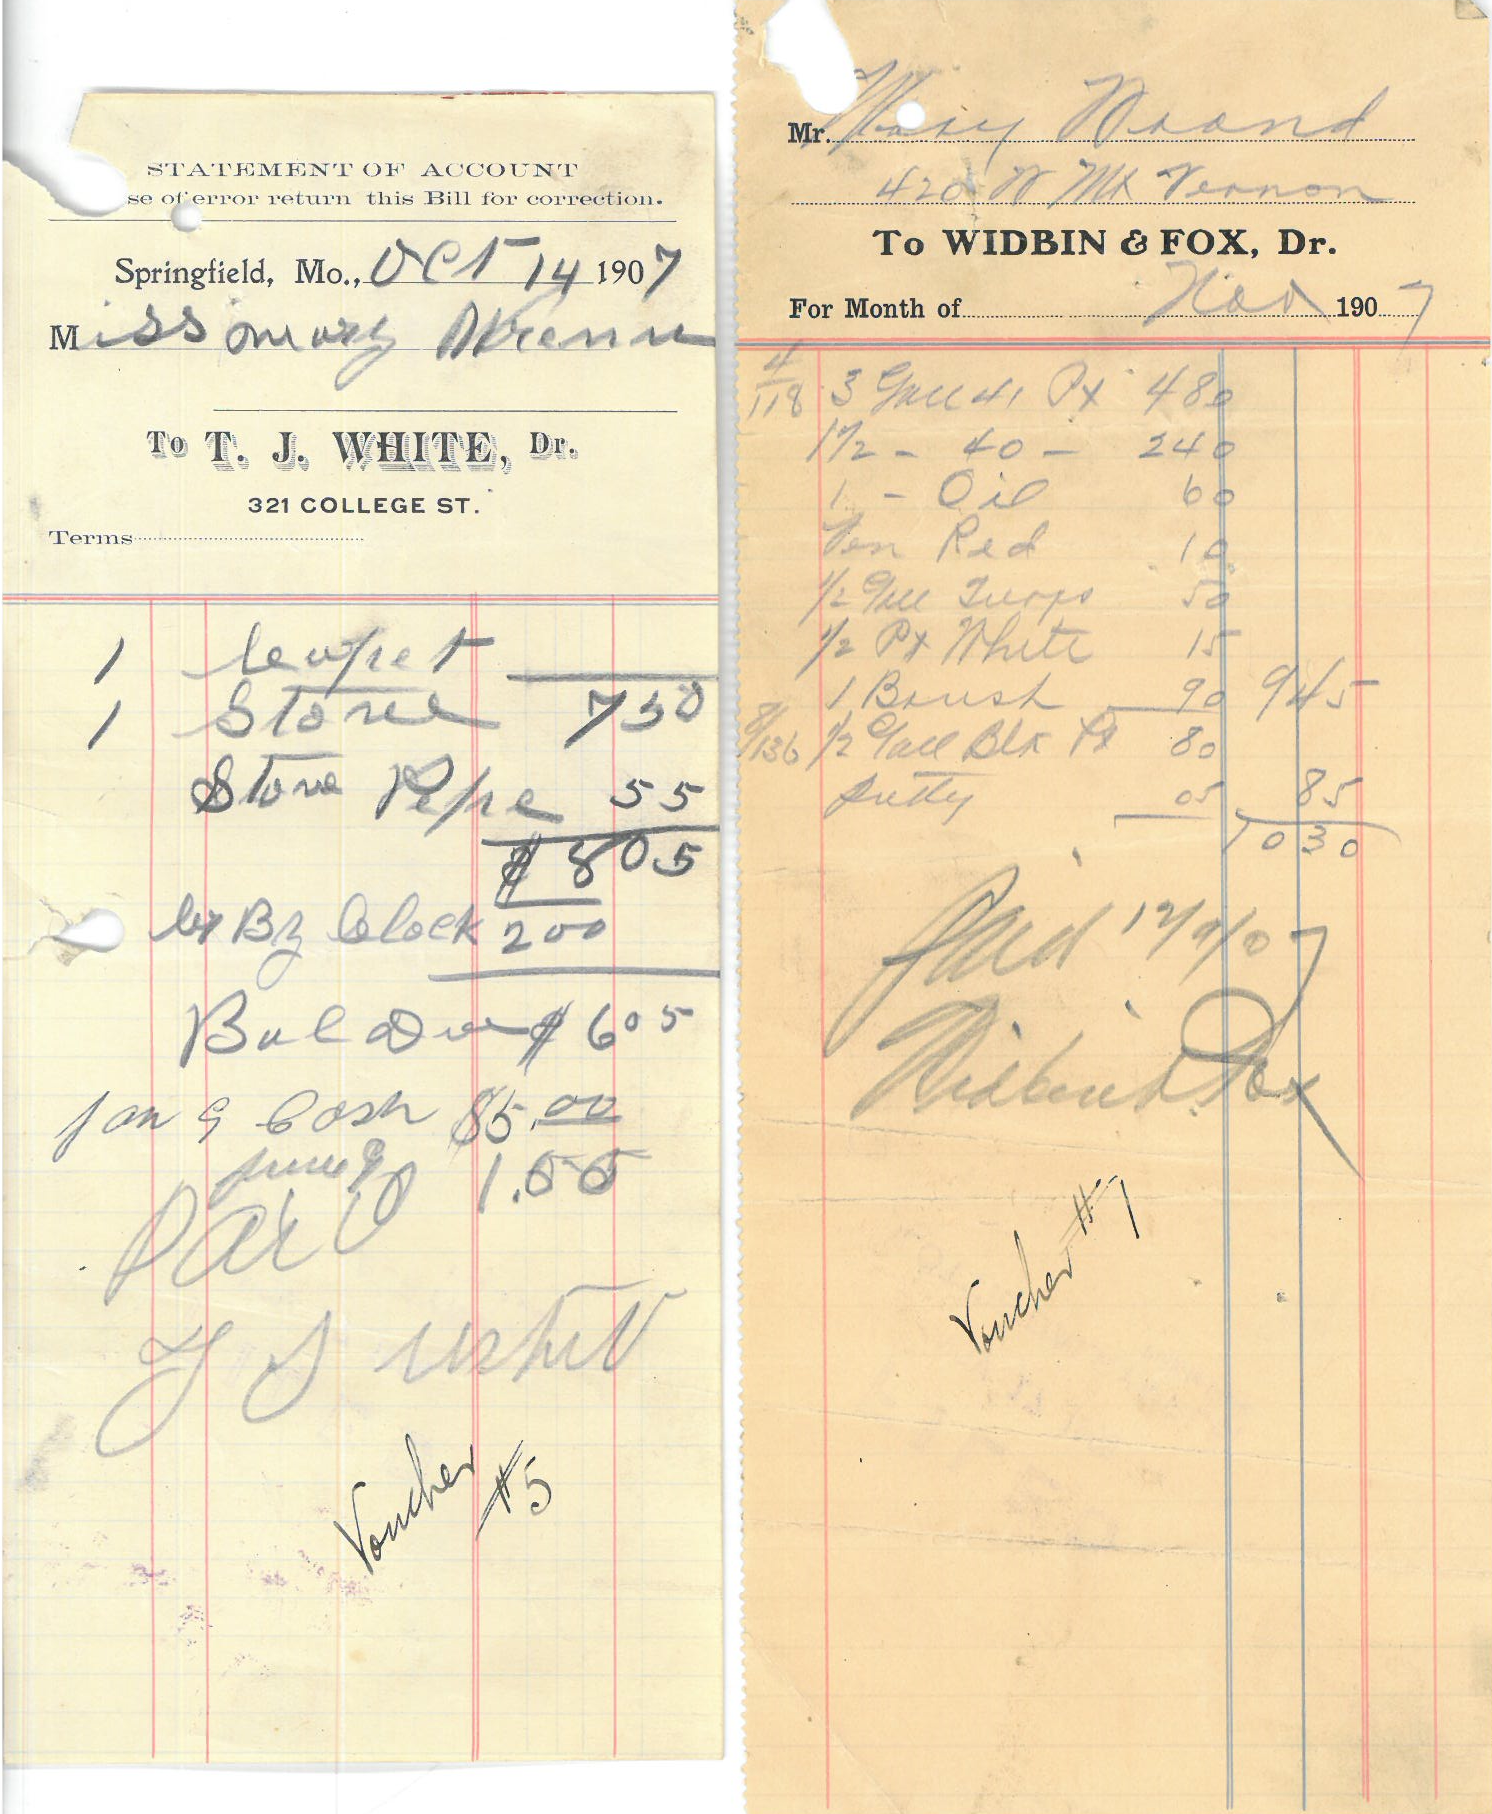 STATEMENT OF ACCOUNT
se of error return this Bill for correction.
Springfield, Mo., Oct 14 1907
Miss Mary
To T. J. WHITE, Dr.
321 COLLEGE ST.
Terms
1 Carpet
1 Stove 730
Stove Pipe 55
$ 805
By Clock 200
Bal Due $ 605
Jan 9 Cash $5.00
1.05
Paid
T J White
Voucher #5
Mr. Mary
420 W Mt Vernon
To WIDBIN & FOX, Dr.
For Month of Nov 1907
4/118 3 Gall 41 Pt 480
1 1/2 - 40 - 240
1 - Oil 60
Ven Red 10
1/2 Gall Turps 50
1/2 Pt White 15
1 Brush 90 945
8/136 1/2 Gall Blk Pt 80
Putty 05 85
1030
Paid 12/9/07
Widbin & Fox
Voucher #7